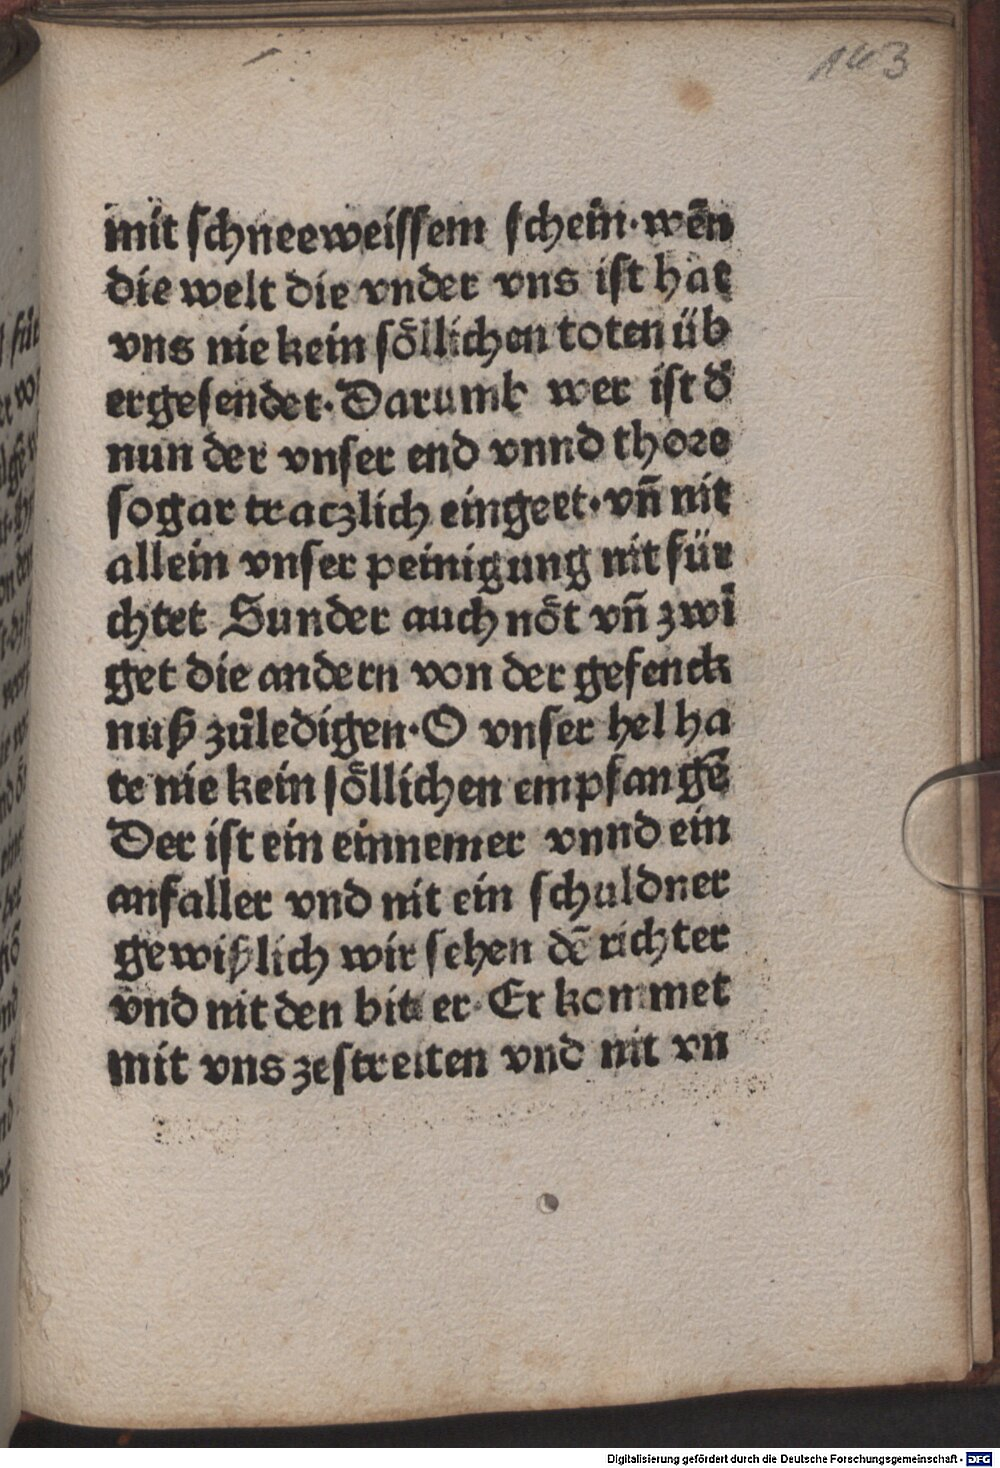 143
mit schneeweissem schein·wen̄
die welt die vnder vns ist hat
vns nie kein söllichen toten üb
ergesendet·Darumb wer ist d̄
nun der vnser end vnnd thore
sogar tratzlich eingeet·vn̄ nit
allein vnser peinigung nit für
chtet Sunder auch nöt vn̄ zwī
get die andern von der gefenck
nuß zůledigen·O vnser hel ha
te nie kein söllichen empfangē
Der ist ein einnemer vnnd ein
anfaller vnd nit ein schuldner
gewißlich wir sehen dē richter
vnd nit den bitter·Er kommet
mit vns zestreiten vnd nit vn
Digitalisierung gefördert durch die Deutsche Forschungsgemeinschaft - DFG